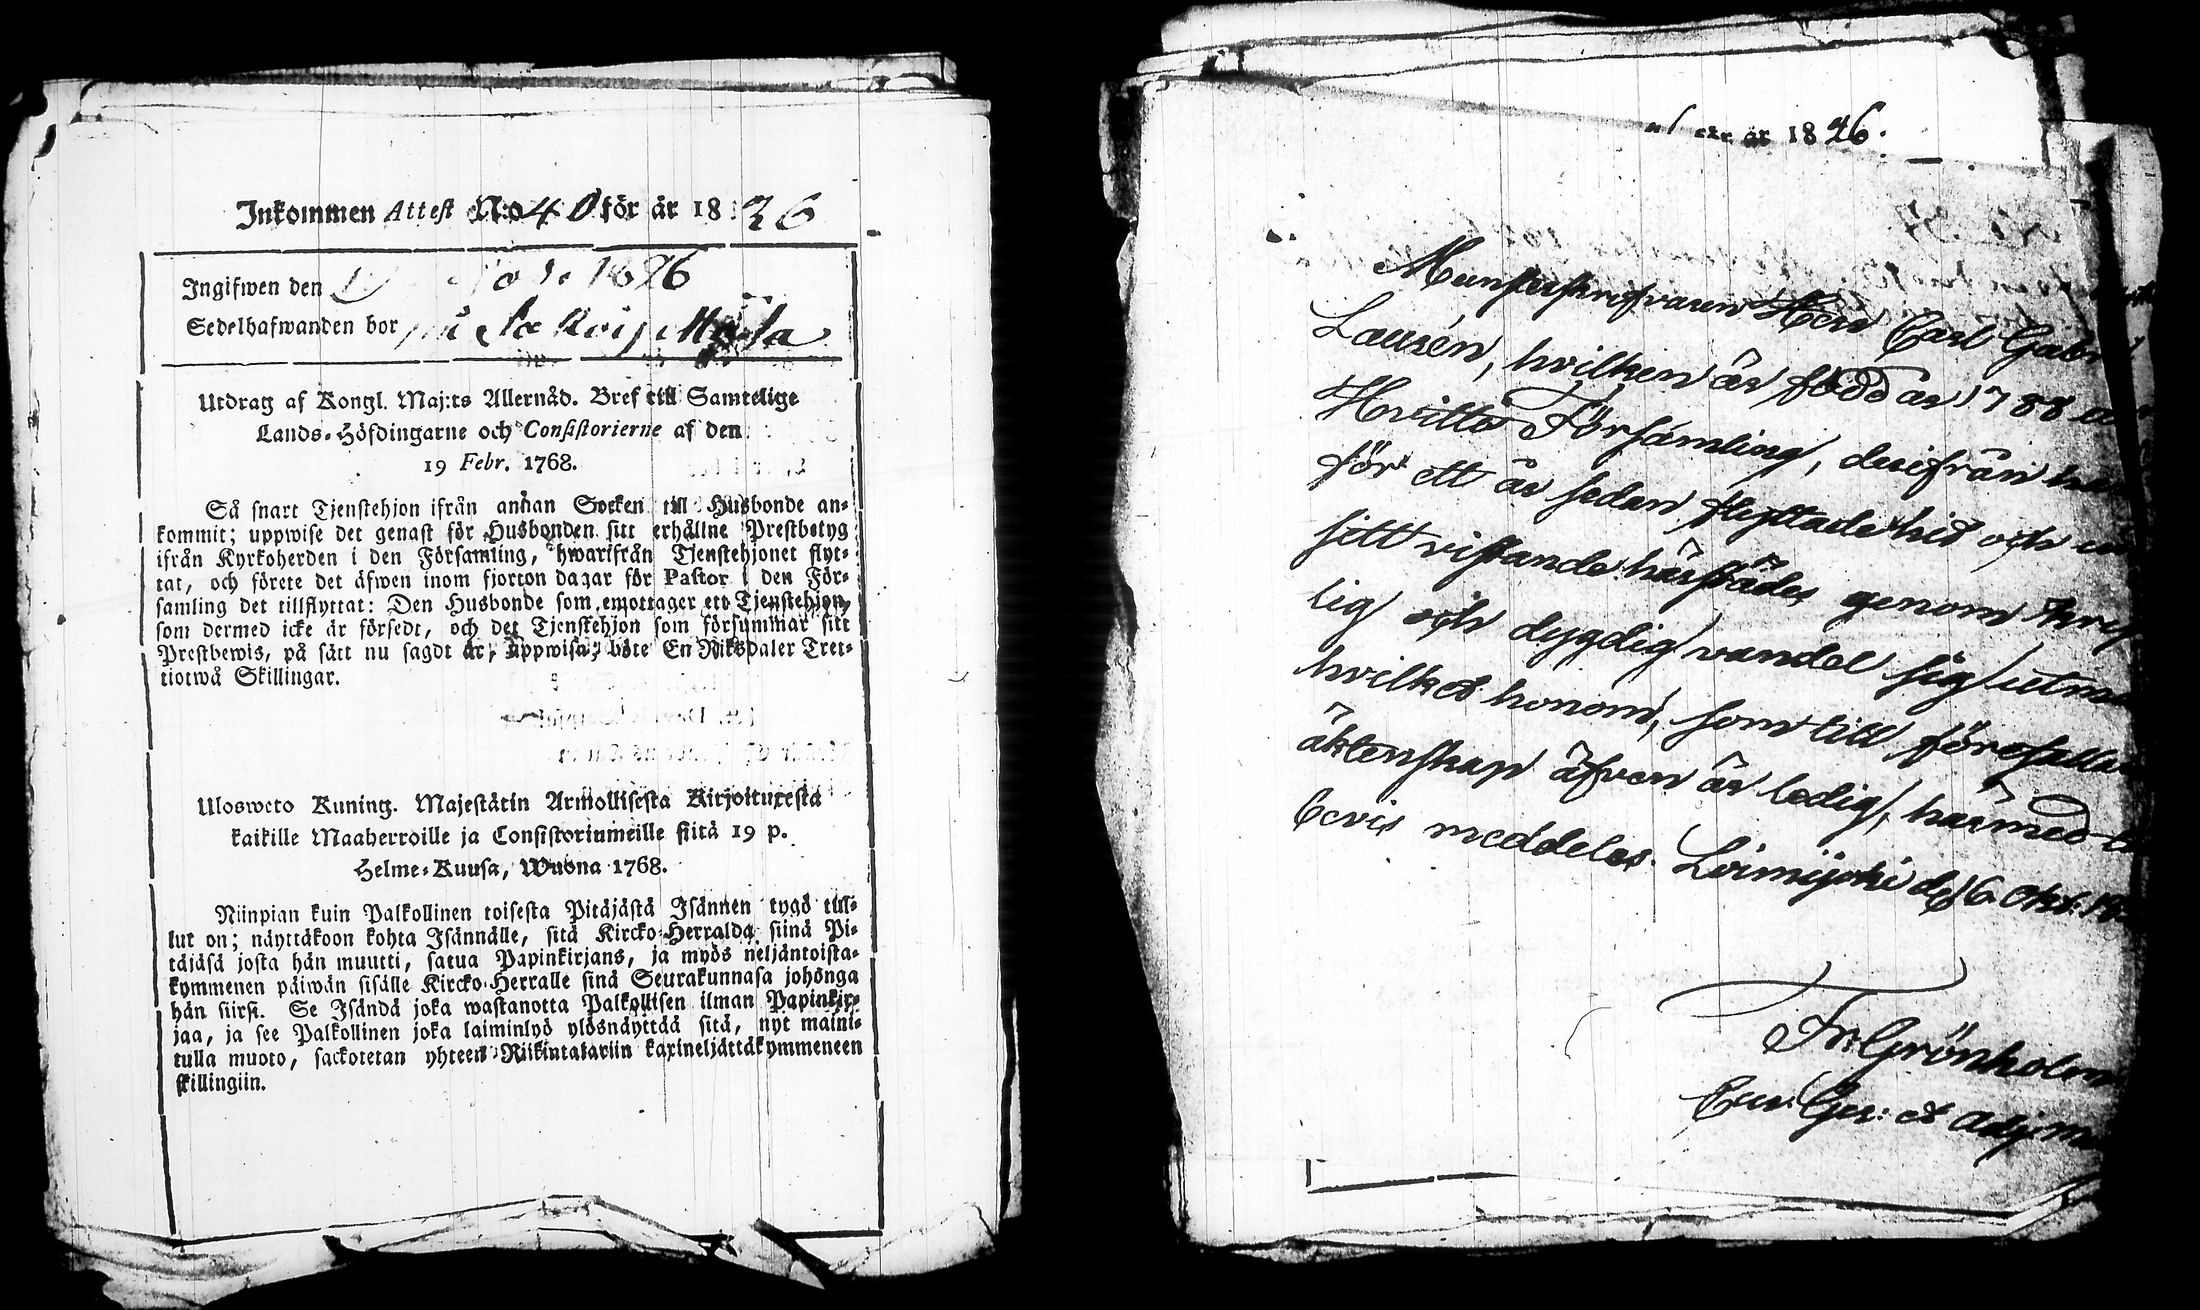 Inkommen Attest N:o 40 för år 1826
Ingifwen den 1826
Sedelhafwanden bor
Utdrag af Kongl. Maj:ts Allernåd. Bref till Samtelige
Lands-Höfdingarne och Consistorierne af den
19 Febr. 1768.
Så snart Tjenstehjon ifrån annan Socken till Husbonde an-
kommit; uppwise det genast för Husbonden sitt erhållne Prestbetyg
ifrån Kyrkoherden i den Församling, hwarifrån Tjenstehjonet flyt-
tat, och förete det äfwen inom fjorton dagar för Pastor i den För-
samling det tillflyttat: Den Husbonde som emottager ett Tjenstehjon,
som dermed icke är försedt, och det Tjenstehjon som försummar sitt
Prestbewis, på sätt nu sagdt är, uppwisa; böte En Riksdaler Tret-
tiotwå Skillingar.
Ulosweto Kuning. Majestätin Armollisesta Kirjoituxesta
kaikille Maaherroille ja Consistoriumeille siitä 19 p.
Helme-Kuusa, Wuona 1768.
Niinpian kuin Palkollinen toisesta Pitäjästä Isännen tygö tul-
lut on; näyttäkoon kohta Isännälle, sitä Kircko-Herralda siinä Pi-
täjäsä josta hän muutti, satua Papinkirjans, ja myös neljäntoista-
kymmenen päiwän sisälle Kircko-Herralle sinä Seurakunnasa johonga
hän siirsi. Se Isändä joka wastanotta Palkollisen ilman Papinkir-
jaa, ja see Palkollinen joka laiminlyö ylösnäyttää sitä, nyt maini-
tulla muoto, sackotetan yhteen Riikintalariin kaxineljättäkymmeneen
skillingiin.
för år 1826.
Munsterskrifvaren Herr Carl Gabr
Lausén, hvilken är född år 1788
Hvittis Församling, derifrån han
för ett år sedan flyttade hit och
sitt vistande härstädes genom
lig och dygdig vandel sig utm
hvilket honom, som till förefallan
äktenskap äfven är ledig, härmed
bevis meddelas. Loimijoki d. 16 Okt. 18
Fr. Grönholm